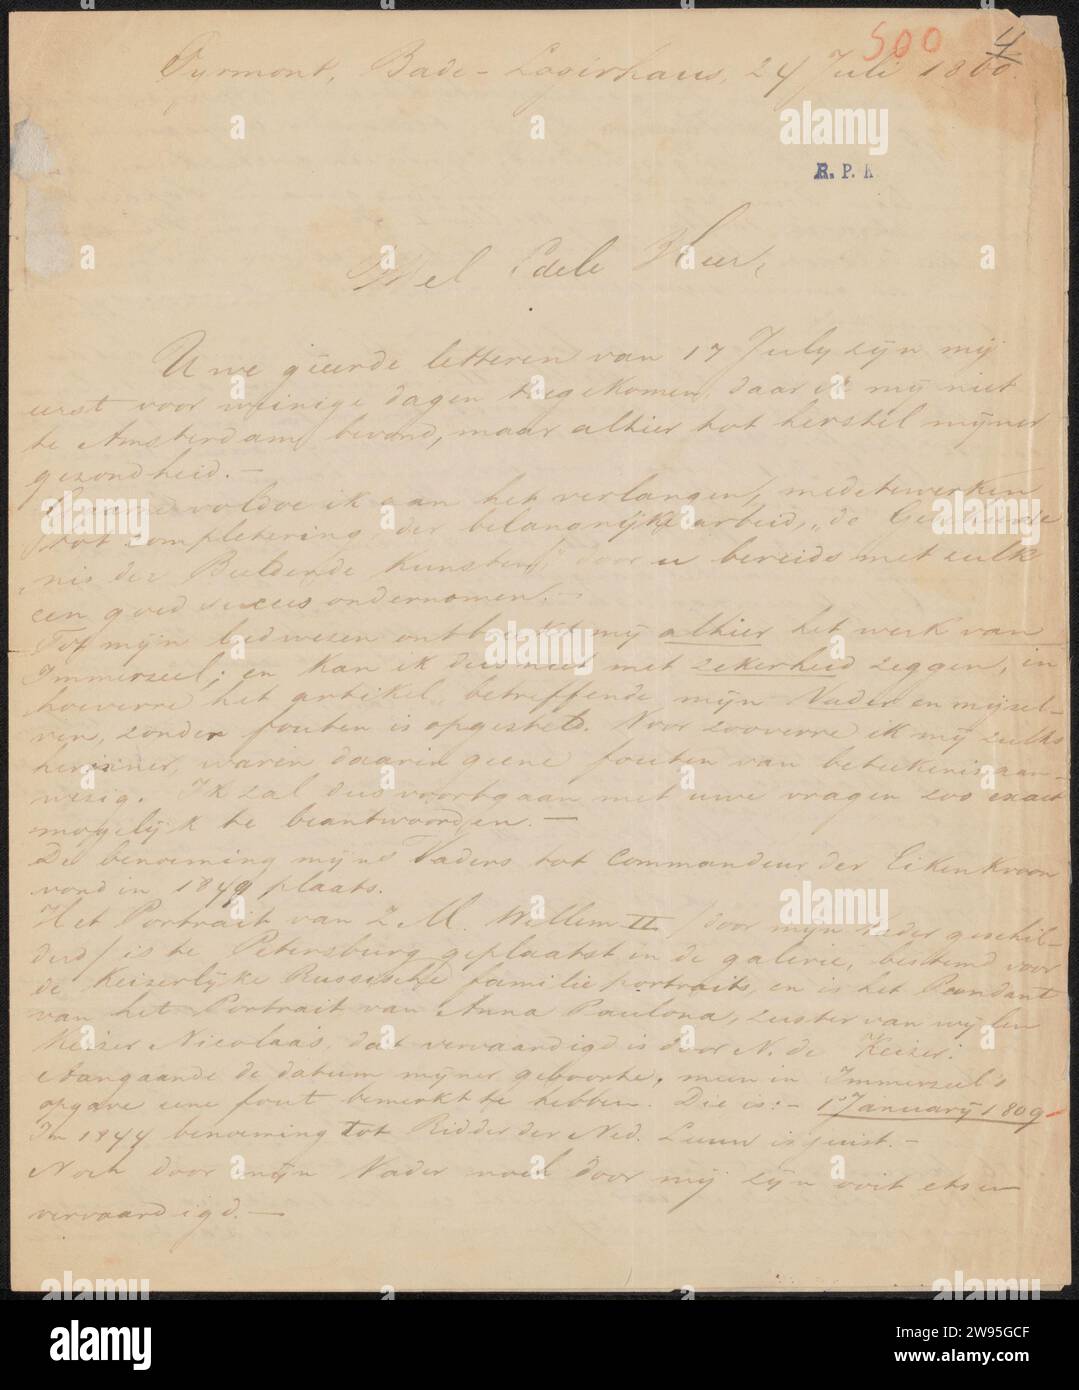 500
4
Pyrmont, Bade-Logirhaus, 24 Juli 1860.
R. P. K
Wel Edele Heer,
Uwe geëerde letteren van 17 July zijn mij
eerst voor weinige dagen toegekomen, daar ik mij niet
te Amsterdam bevond, maar alhier tot herstel mijner
gezondheid. —
Gaarne voldoe ik aan het verlangen, medetewerken
tot completering der belangrijke arbeid, „de Geschiede-
„nis der Beeldende Kunsten" door u bereids met zulk
een goed succes ondernomen. —
Tot mijn leedwezen ontbreekt mij alhier het werk van
Immerzeel; en kan ik dus niet met zekerheid zeggen, in
hoeverre het artikel, betreffende mijn Vader en mijzel-
ven, zonder fouten is opgesteld. Voor zooverre ik mij zulks
herinner, waren daarin geene fouten van beteekenis aan-
wezig. Ik zal dus voortgaan met uwe vragen zoo exact
mogelijk te beantwoorden. —
De benoeming mijns Vaders tot Commandeur der Eikenkroon
vond in 1849 plaats.
Het Portrait van Z. M. Willem II / door mijn Vader geschil-
derd / is te Petersburg geplaatst in de galerie, bestemd voor
de Keizerlijke Russische familie portraits, en is het Pendant
van het Portrait van Anna Paulona, zuster van wijlen
Keizer Nicolaas, dat vervaardigd is door N. de Keizer.
Aangaande de datum mijner geboorte, meen in Immerzeel's
opgave eene fout bemerkt te hebben. Die is: — 1e January 1809
In 1844 benoeming tot Ridder der Ned. Leeuw is juist. —
Noch door mijn Vader noch door mij zijn ooit etsen
vervaardigd. —
alamy
Image ID: 2W95GCF
www.alamy.com